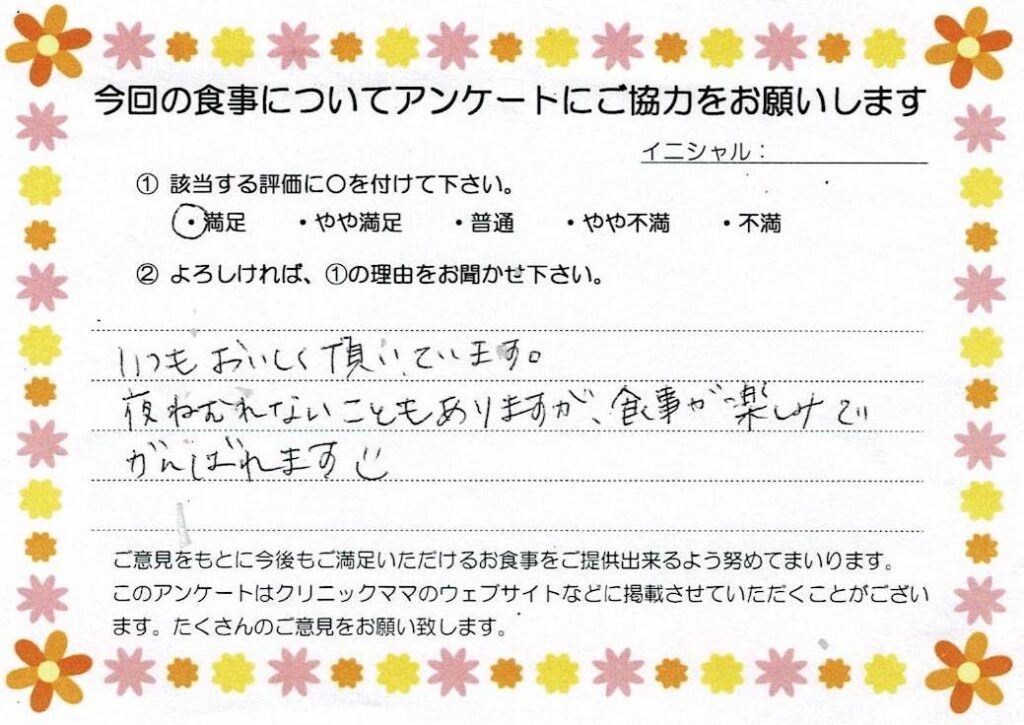 今回の食事についてアンケートにご協力をお願いします
イニシャル：
① 該当する評価に〇を付けて下さい。
・満足 ・やや満足 ・普通 ・やや不満 ・不満
② よろしければ、①の理由をお聞かせ下さい。
いつもおいしく頂いています。
夜ねむれないこともありますが、食事が楽しみで
がんばれます
ご意見をもとに今後もご満足いただけるお食事をご提供出来るよう努めてまいります。
このアンケートはクリニックママのウェブサイトなどに掲載させていただくことがござい
ます。たくさんのご意見をお願い致します。